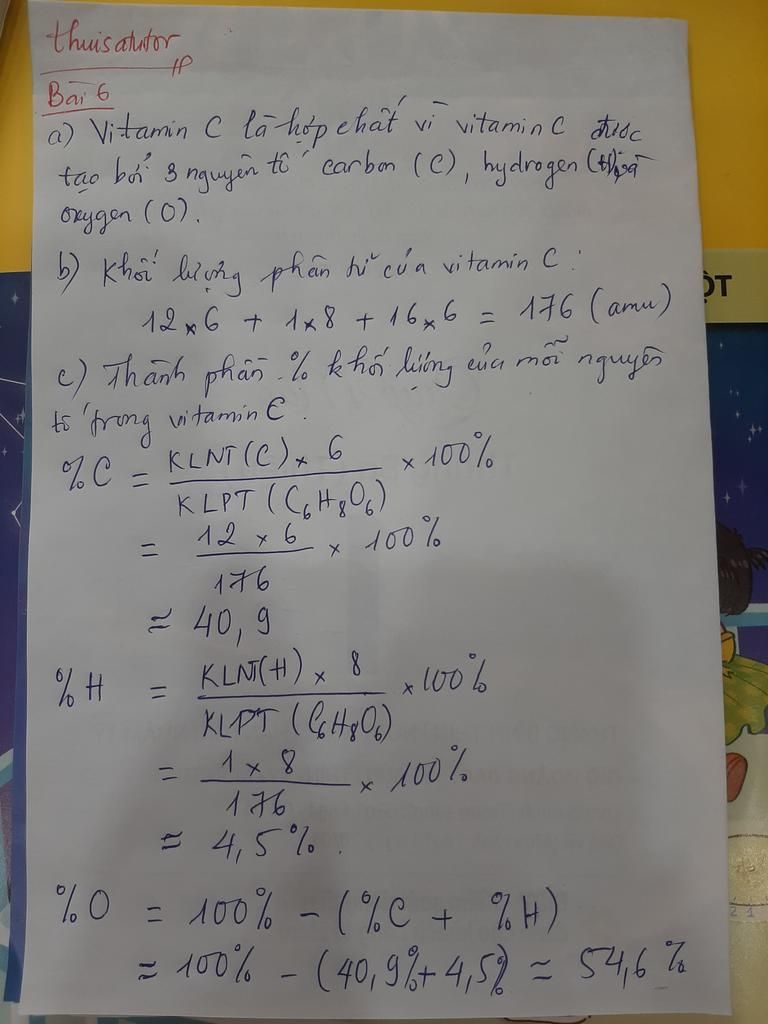 thuisalutor
Bài 6
a) Vitamin C là hợp chất vì vitamin C được
tạo bởi 3 nguyên tố carbon (C), hydrogen (H), và
oxygen (O).
b) Khối lượng phân tử của vitamin C :
12 x 6 + 1 x 8 + 16 x 6 = 176 (amu)
c) Thành phần % khối lượng của mỗi nguyên
tố trong vitamin C.
%C = KLNT(C) x 6 / KLPT (C₆H₈O₆) x 100%
= 12 x 6 / 176 x 100%
≈ 40,9
%H = KLNT(H) x 8 / KLPT (C₆H₈O₆) x 100%
= 1 x 8 / 176 x 100%
≈ 4,5%.
%O = 100% - (%C + %H)
≈ 100% - (40,9% + 4,5%) ≈ 54,6%
ỘT
2 1